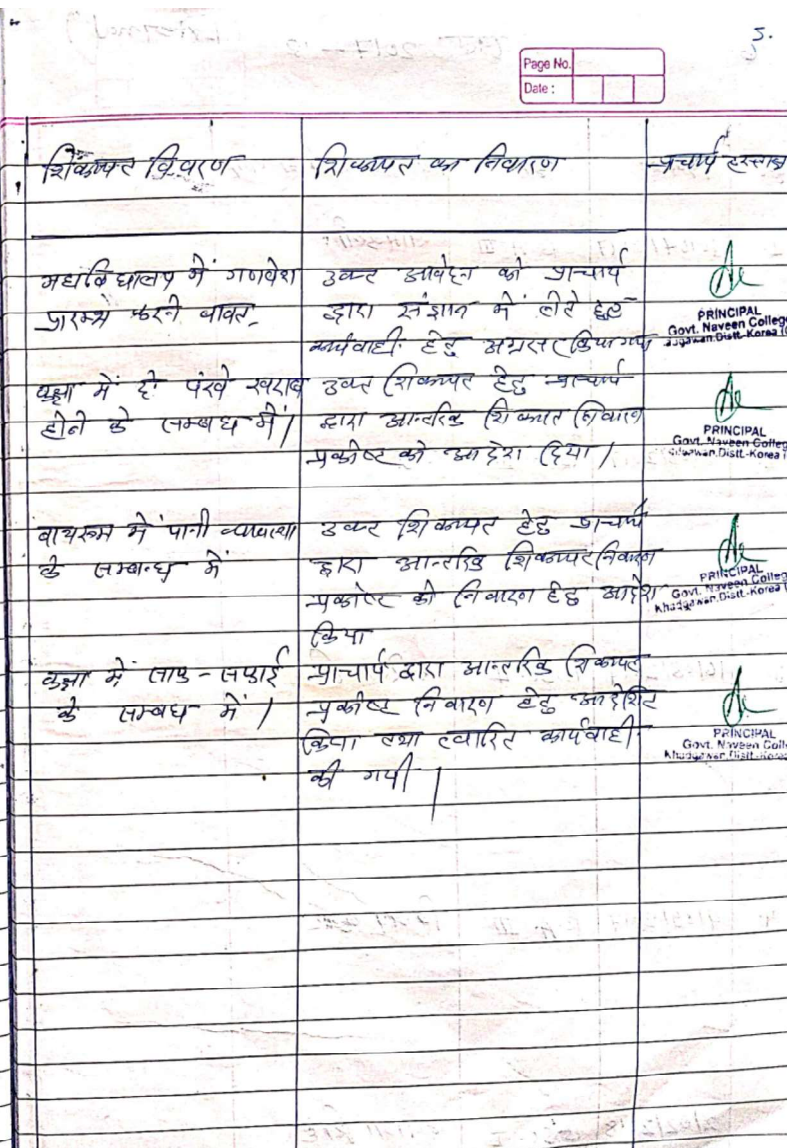 5.
Page No.
Date :
शिकायत विवरण
शिकायत का निवारण
प्राचार्य हस्ताक्षर
महाविद्यालय में गणवेश
प्रारम्भ करने बावत
उक्त आवेदन को प्राचार्य
द्वारा संज्ञान में लेते हुए
कार्यवाही हेतु अग्रसर किया गया
PRINCIPAL
Govt. Naveen College
Distt-Korea
कक्षा में दो पंखे खराब
होने के सम्बंध में।
उक्त शिकायत हेतु प्राचार्य
द्वारा आन्तरिक शिकायत निवारण
प्रकोष्ट को आदेश दिया।
PRINCIPAL
Govt. Naveen College
Distt.-Korea
बाथरूम में पानी व्यवस्था
के सम्बन्ध में
उक्त शिकायत हेतु प्राचार्य
द्वारा आन्तरिक शिकायत निवारण
प्रकोष्ट को निवारण हेतु आदेश
किया
PRINCIPAL
Govt. Naveen College
Khadgawan, Distt.-Korea
कक्षा में साफ-सफाई
के सम्बंध में।
प्राचार्य द्वारा आन्तरिक शिकायत
प्रकोष्ट निवारण हेतु आदेशित
किया तथा त्वारित कार्यवाही
की गयी।
PRINCIPAL
Govt. Naveen Colle
Khadgawan, Distt.-Korea